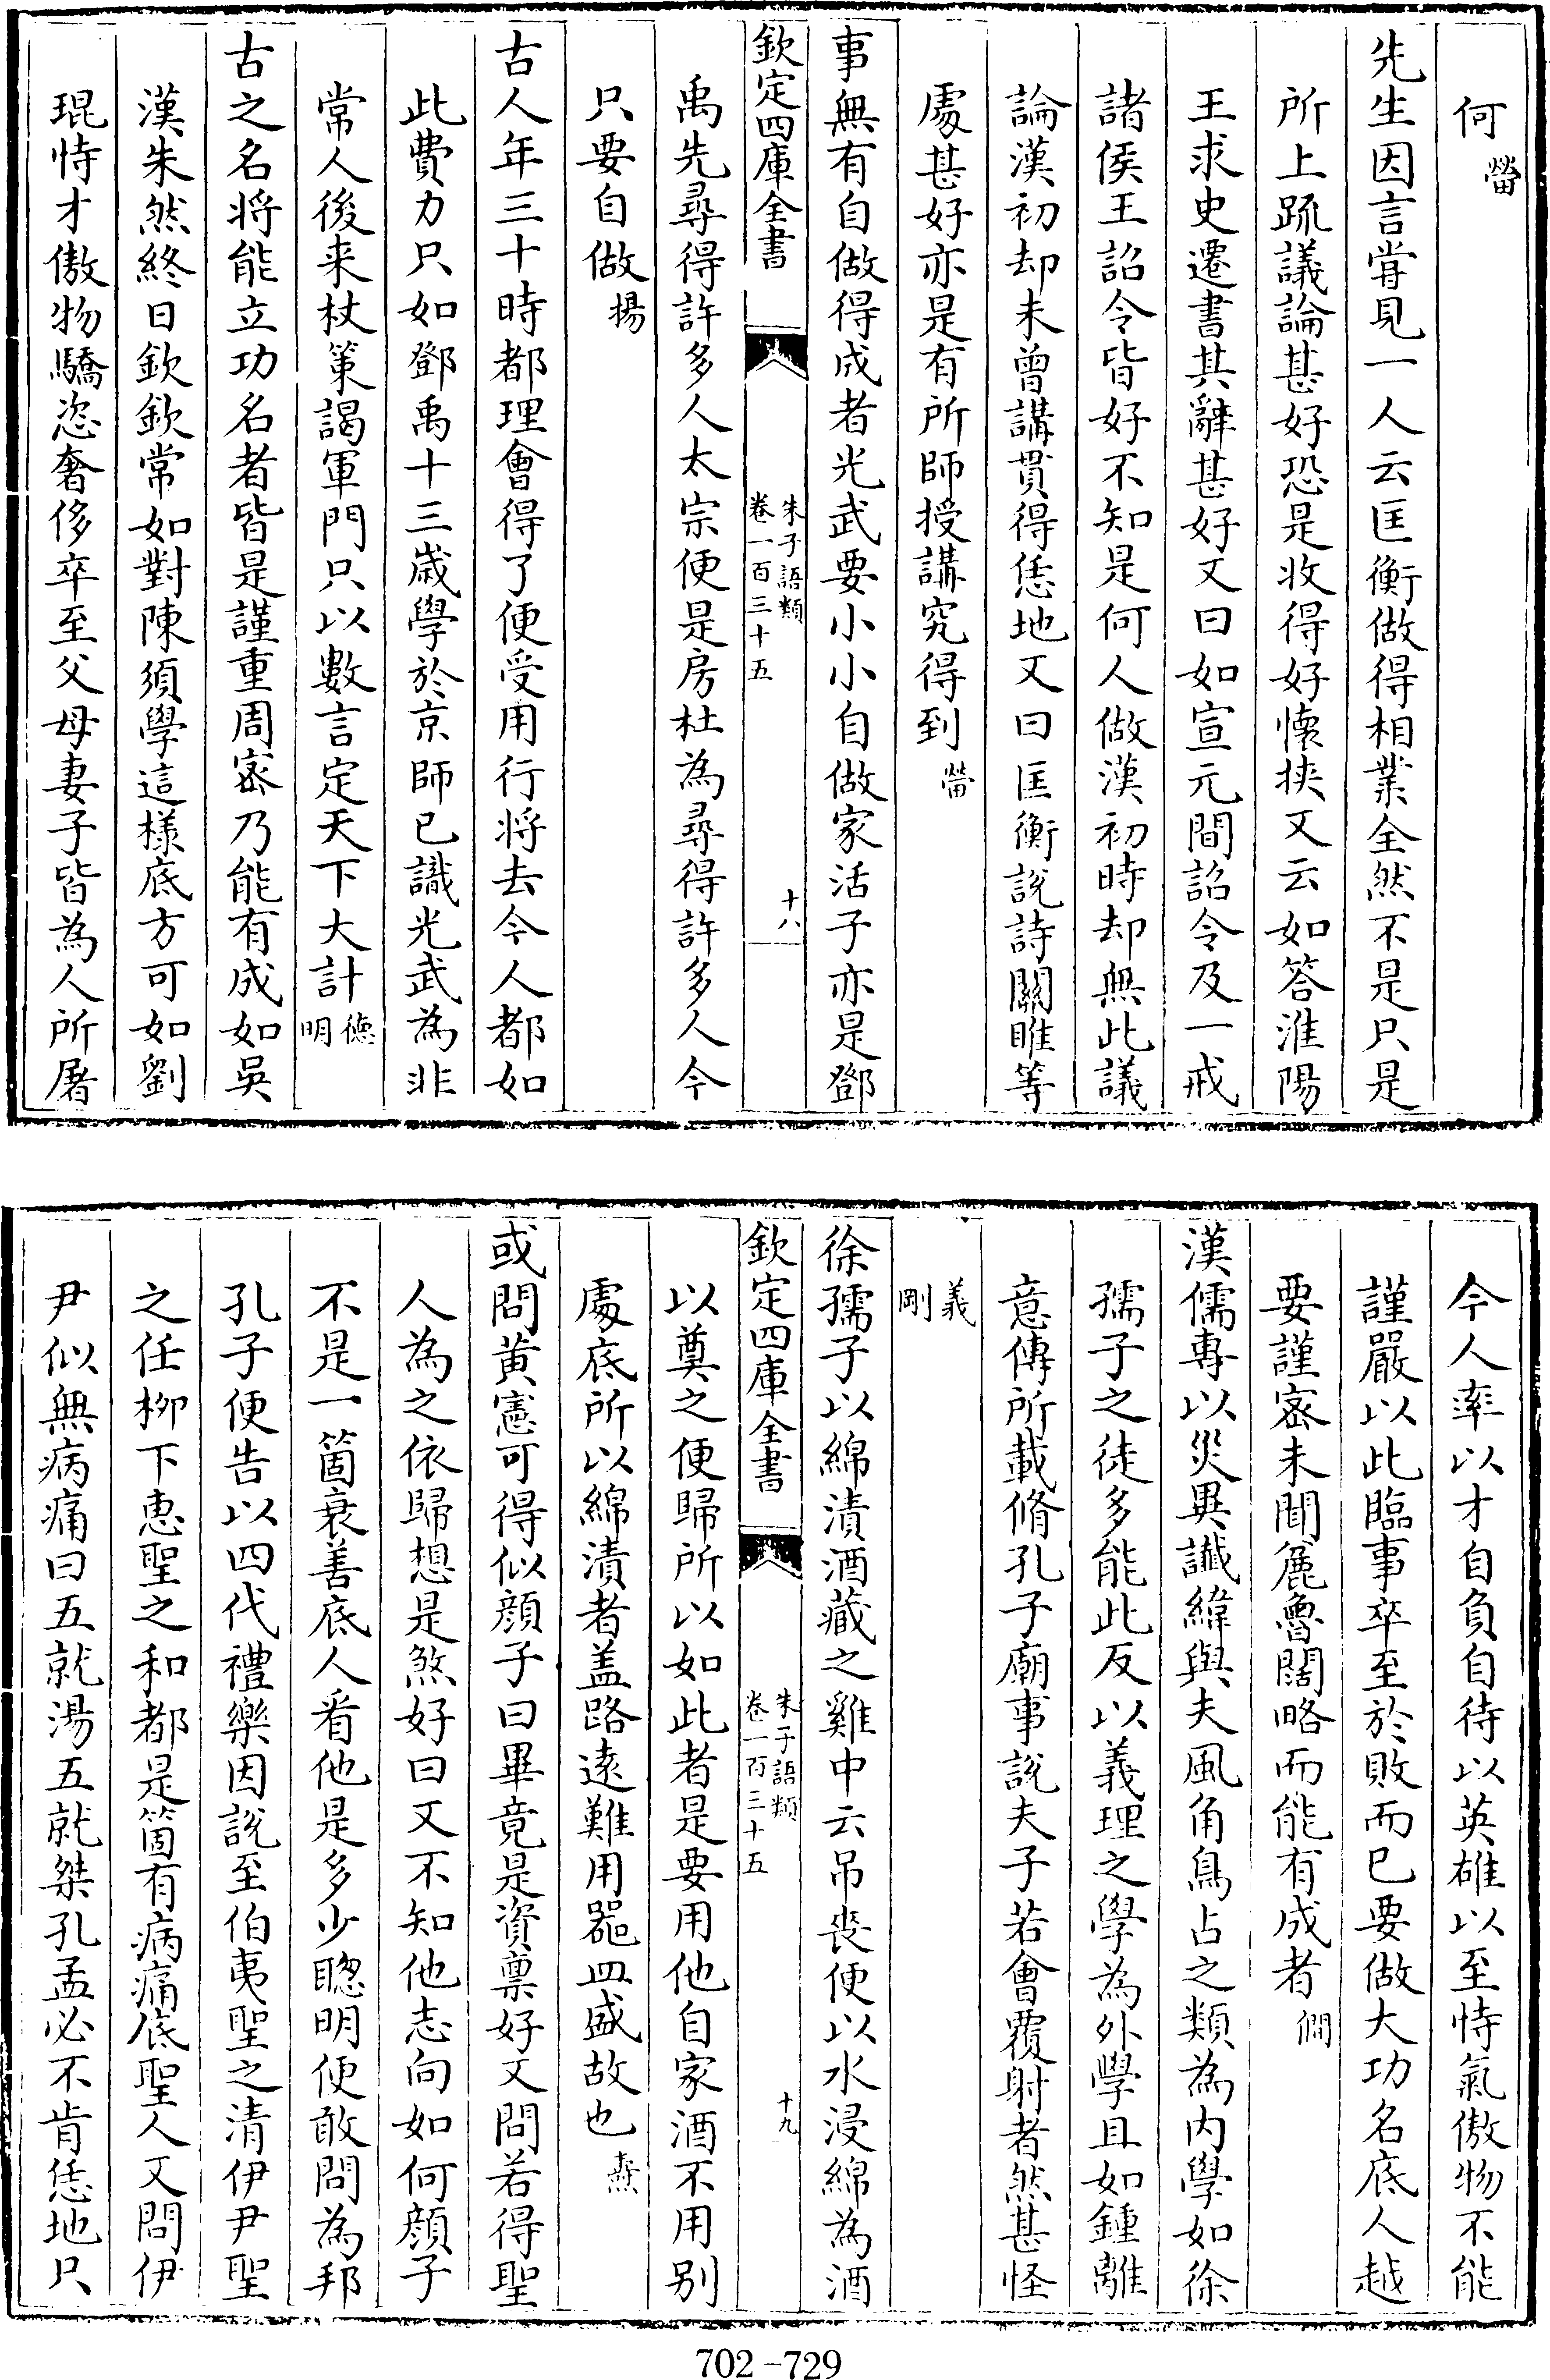 何㽦
先生因言嘗見一人云匡衡做得相業全然不是只是
所上疏議論甚好恐是收得好懷挾又云如答淮陽
王求史遷書其辭甚好又曰如宣元間詔令及一戒
諸侯王詔令皆好不知是何人做漢初時却無此議
論漢初却未曾講貫得恁地又曰匡衡說詩關雎等
處甚好亦是有所師授講究得到㽦
事無有自做得成者光武要小小自做家活子亦是鄧
欽定四庫全書
朱子語類
卷一百三十五
十八
禹先尋得許多人太宗便是房杜為尋得許多人今
只要自做揚
古人年三十時都理會得了便受用行將去今人都如
此費力只如鄧禹十三歲學於京師已識光武為非
常人後来杖策謁軍門只以數言定天下大計德明
古之名將能立功名者皆是謹重周密乃能有成如吳
漢朱然終日欽欽常如對陳須學這様底方可如劉
琨恃才傲物驕恣奢侈卒至父母妻子皆為人所屠
今人率以才自負自待以英雄以至恃氣傲物不能
謹嚴以此臨事卒至於敗而已要做大功名底人越
要謹密未聞麄魯闊略而能有成者僩
漢儒專以災異讖緯與夫風角鳥占之類為内學如徐
孺子之徒多能此反以義理之學為外學且如鍾離
意傳所載脩孔子廟事說夫子若會覆射者然甚怪
義剛
徐孺子以綿漬酒藏之雞中云吊喪便以水浸綿為酒
欽定四庫全書
朱子語類
卷一百三十五
十九
以奠之便歸所以如此者是要用他自家酒不用别
處底所以綿漬者盖路遠難用器皿盛故也燾
或問黃憲可得似顔子曰畢竟是資禀好又問若得聖
人為之依歸想是煞好曰又不知他志向如何顔子
不是一箇衰善底人看他是多少聰明便敢問為邦
孔子便告以四代禮樂因說至伯夷聖之清伊尹聖
之任柳下惠聖之和都是箇有病痛底聖人又問伊
尹似無病痛曰五就湯五就桀孔孟必不肯恁地只
702-729